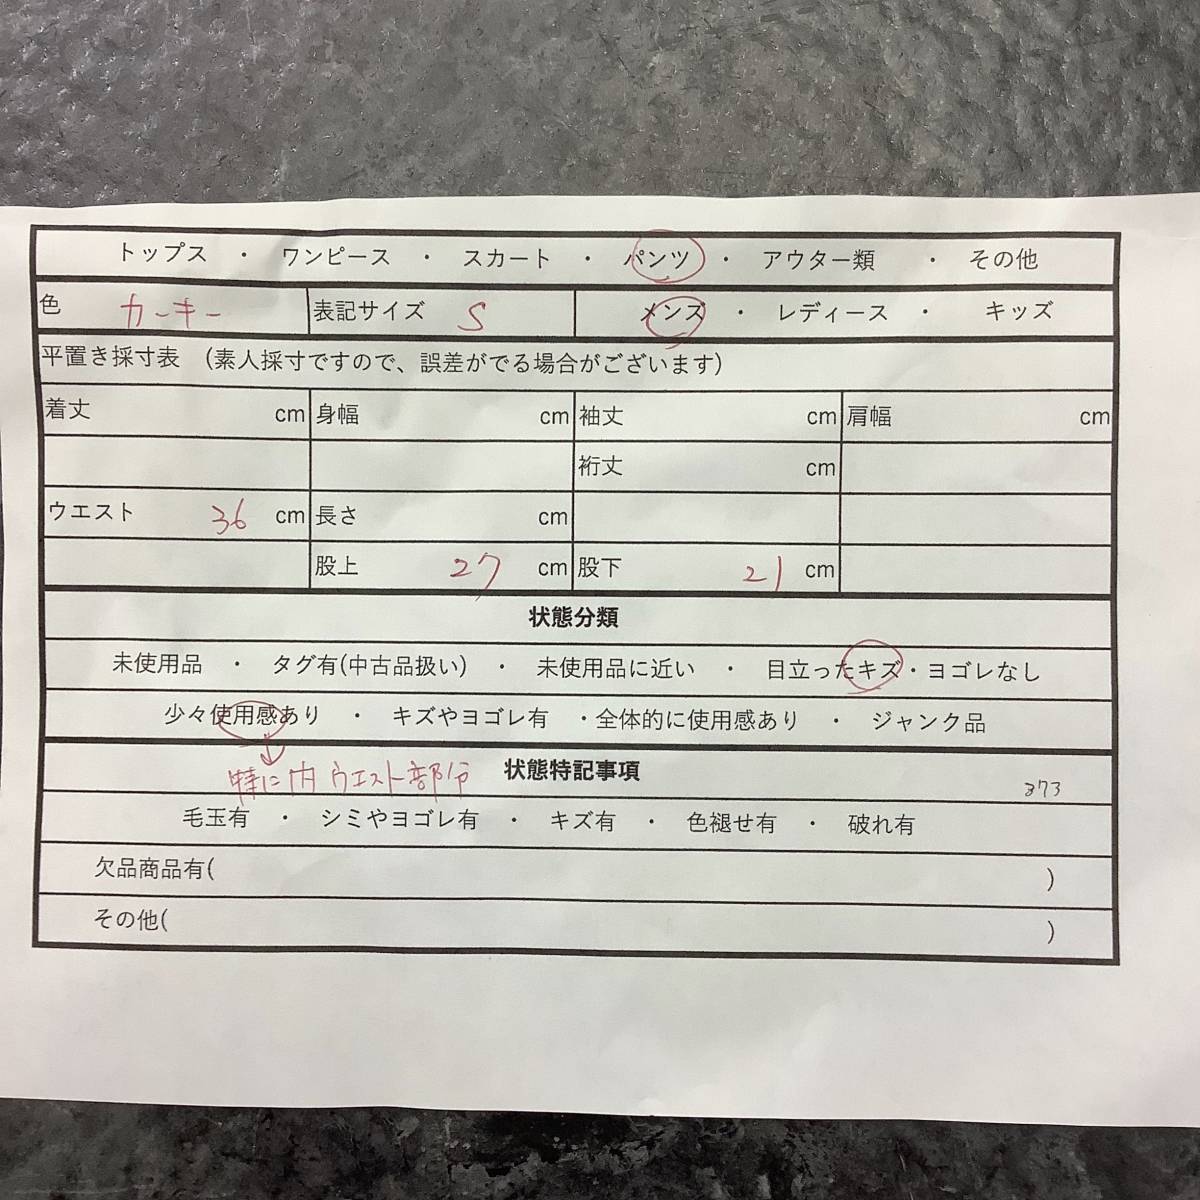 トップス ・ ワンピース ・ スカート ・ パンツ ・ アウター類 ・ その他
色 カーキー 表記サイズ S メンズ ・ レディース ・ キッズ
平置き採寸表 (素人採寸ですので、誤差がでる場合がございます)
着丈 cm 身幅 cm 袖丈 cm 肩幅 cm
裄丈 cm
ウエスト 36 cm 長さ cm
股上 27 cm 股下 21 cm
状態分類
未使用品 ・ タグ有(中古品扱い) ・ 未使用品に近い ・ 目立ったキズ・ヨゴレなし
少々使用感あり ・ キズやヨゴレ有 ・全体的に使用感あり ・ ジャンク品
特に内ウエスト部分 状態特記事項 373
毛玉有 ・ シミやヨゴレ有 ・ キズ有 ・ 色褪せ有 ・ 破れ有
欠品商品有( )
その他( )